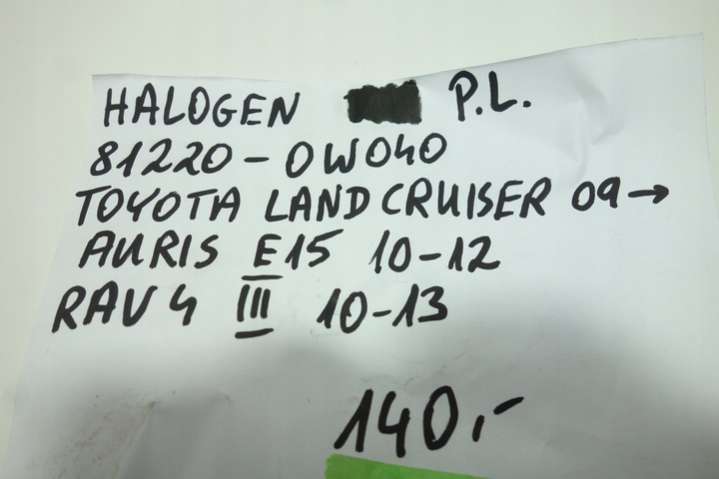 HALOGEN P.L.
81220-0W040
TOYOTA LAND CRUISER 09→
AURIS E15 10-12
RAV 4 III 10-13
140,-